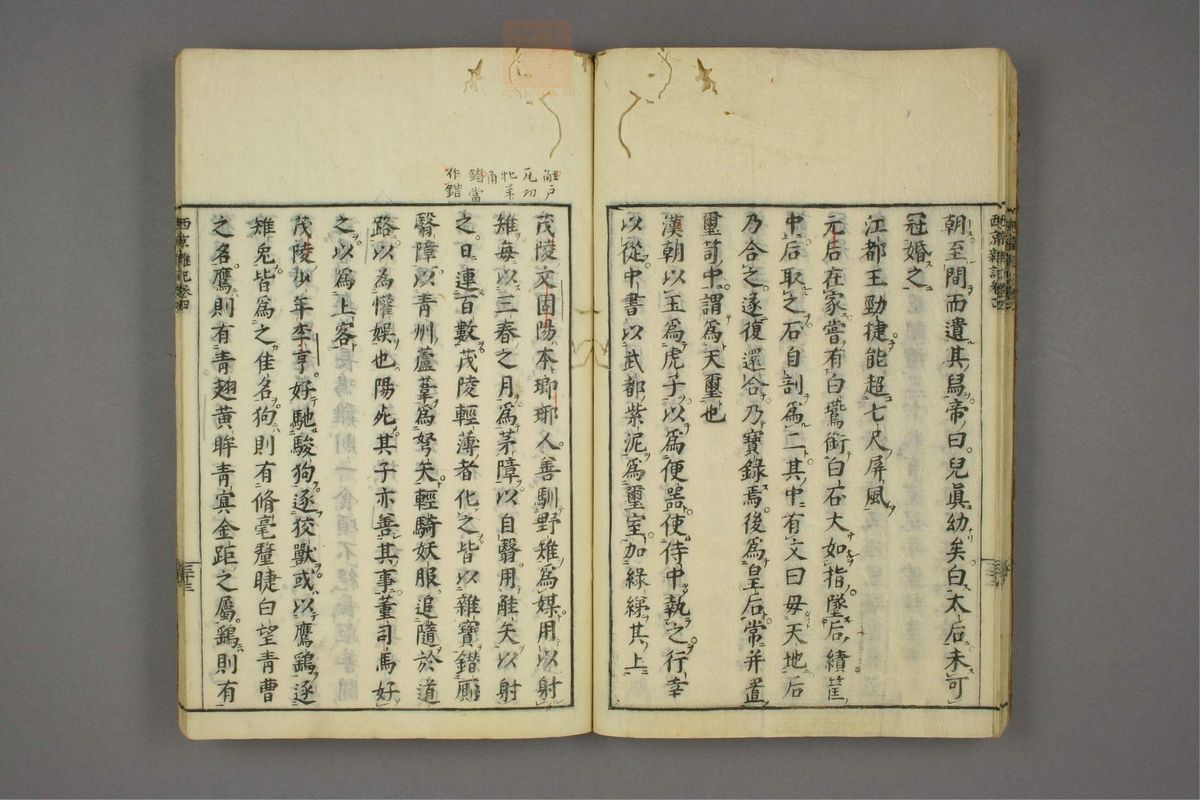 朝至閤而遺其舄帝曰兒眞幼矣白太后未可
冠婚之
江都王勁捷能超七尺屏風
元后在家嘗有白鷰銜白石大如指墜后續筐
中后取之石自剖爲二其中有文曰母天地后
乃合之遂復還合乃寶錄焉後爲皇后常并置
璽笥中謂爲天璽也
漢朝以玉爲虎子以爲便噐使侍中執之行幸
以從中書以武都紫泥爲璽室加綠綈其上
西京雜記卷四
茂陵文固陽本瑯琊人善馴野雉爲媒用以射
雉每以三春之月爲茅障以自翳用觟矢以射
之日連百數茂陵輕薄者化之皆以雜寶錯厠
翳障以青州蘆葦爲弩矢輕騎妖服追隨於道
路以為懽娛也陽死其子亦善其事董司馬好
之以爲上客
茂陵少年李亨好馳駿狗逐狡獸或以鷹鷂逐
雉兔皆爲之佳名狗則有脩毫釐睫白望青曹
之名鷹則有青翅黃眸青冥金距之屬鷂則有
西京雜記卷四
觟戶
瓦切
牝羊
角
錯當
作鍇